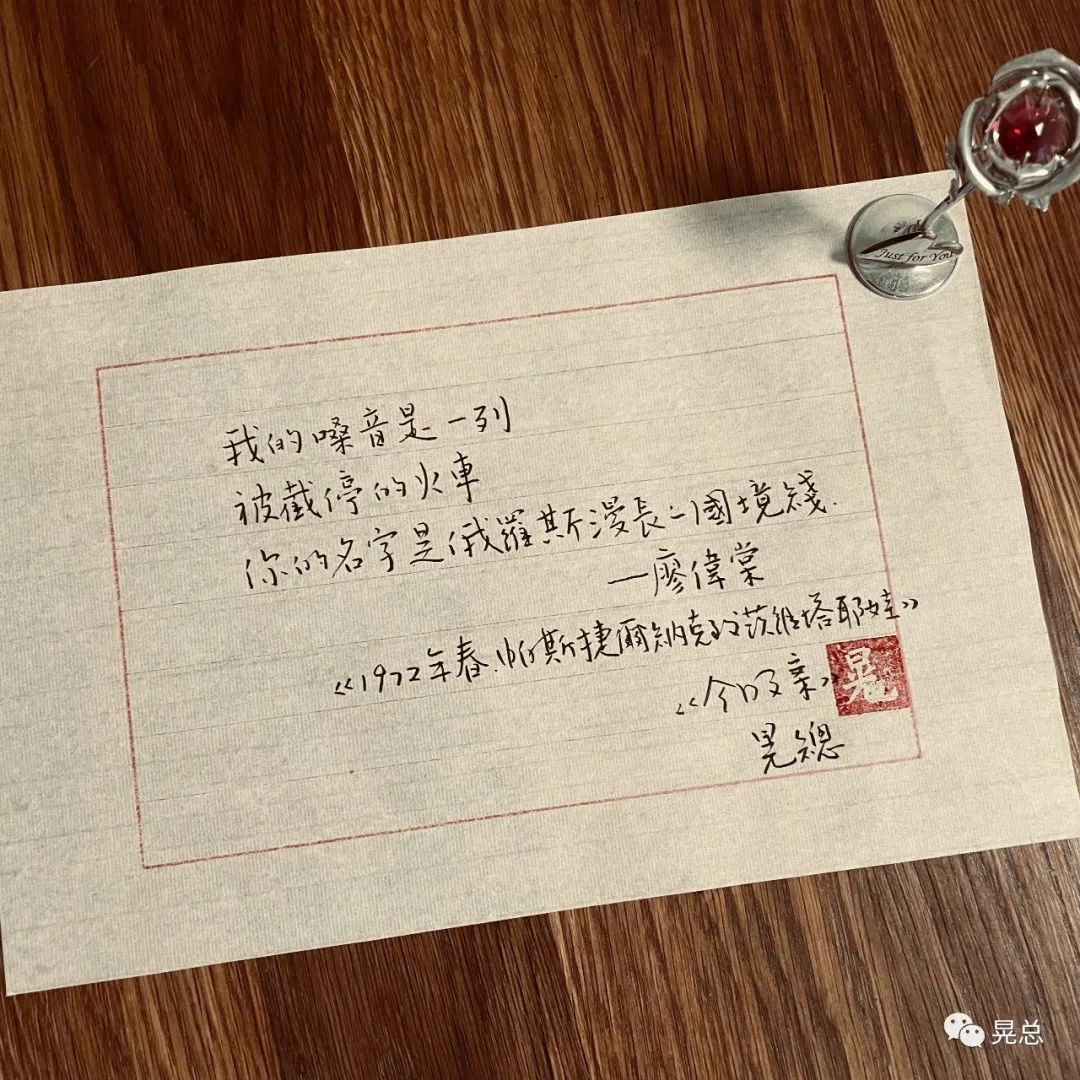 我的嗓音是一列
被截停的火車
你的名字是俄羅斯漫長的國境綫.
—廖偉棠
《1972年春.帕斯捷爾納克致茨維塔耶娃》
《今收亲》
晃總
晃
Just for You
晃总